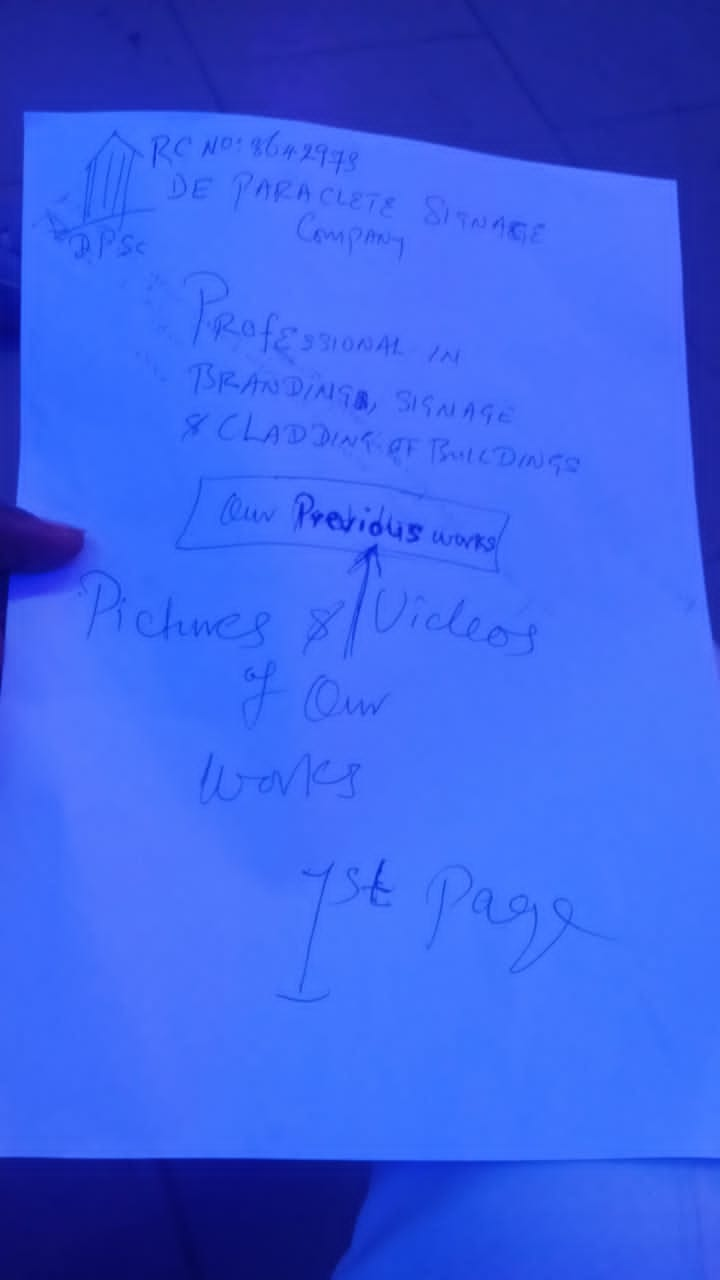 RC NO: 8642973
DE PARACLETE SIGNAGE
COMPANY
DPSC
PROFESSIONAL IN
BRANDING, SIGNAGE
& CLADDING OF BUILDINGS
Our Previous works
Pictures & Videos
of Our
works
1st Page